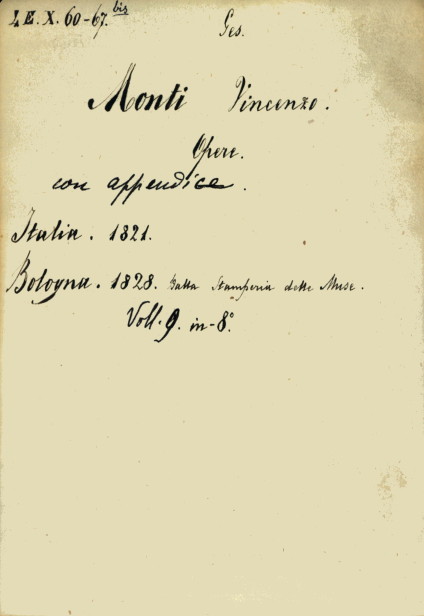 I E. X. 60-67. bis
Ges.
Monti Vincenzo.
Opere.
con appendice.
Italia. 1821.
Bologna. 1828. Dalla Stamperia delle Muse.
Voll. 9. in-8°.